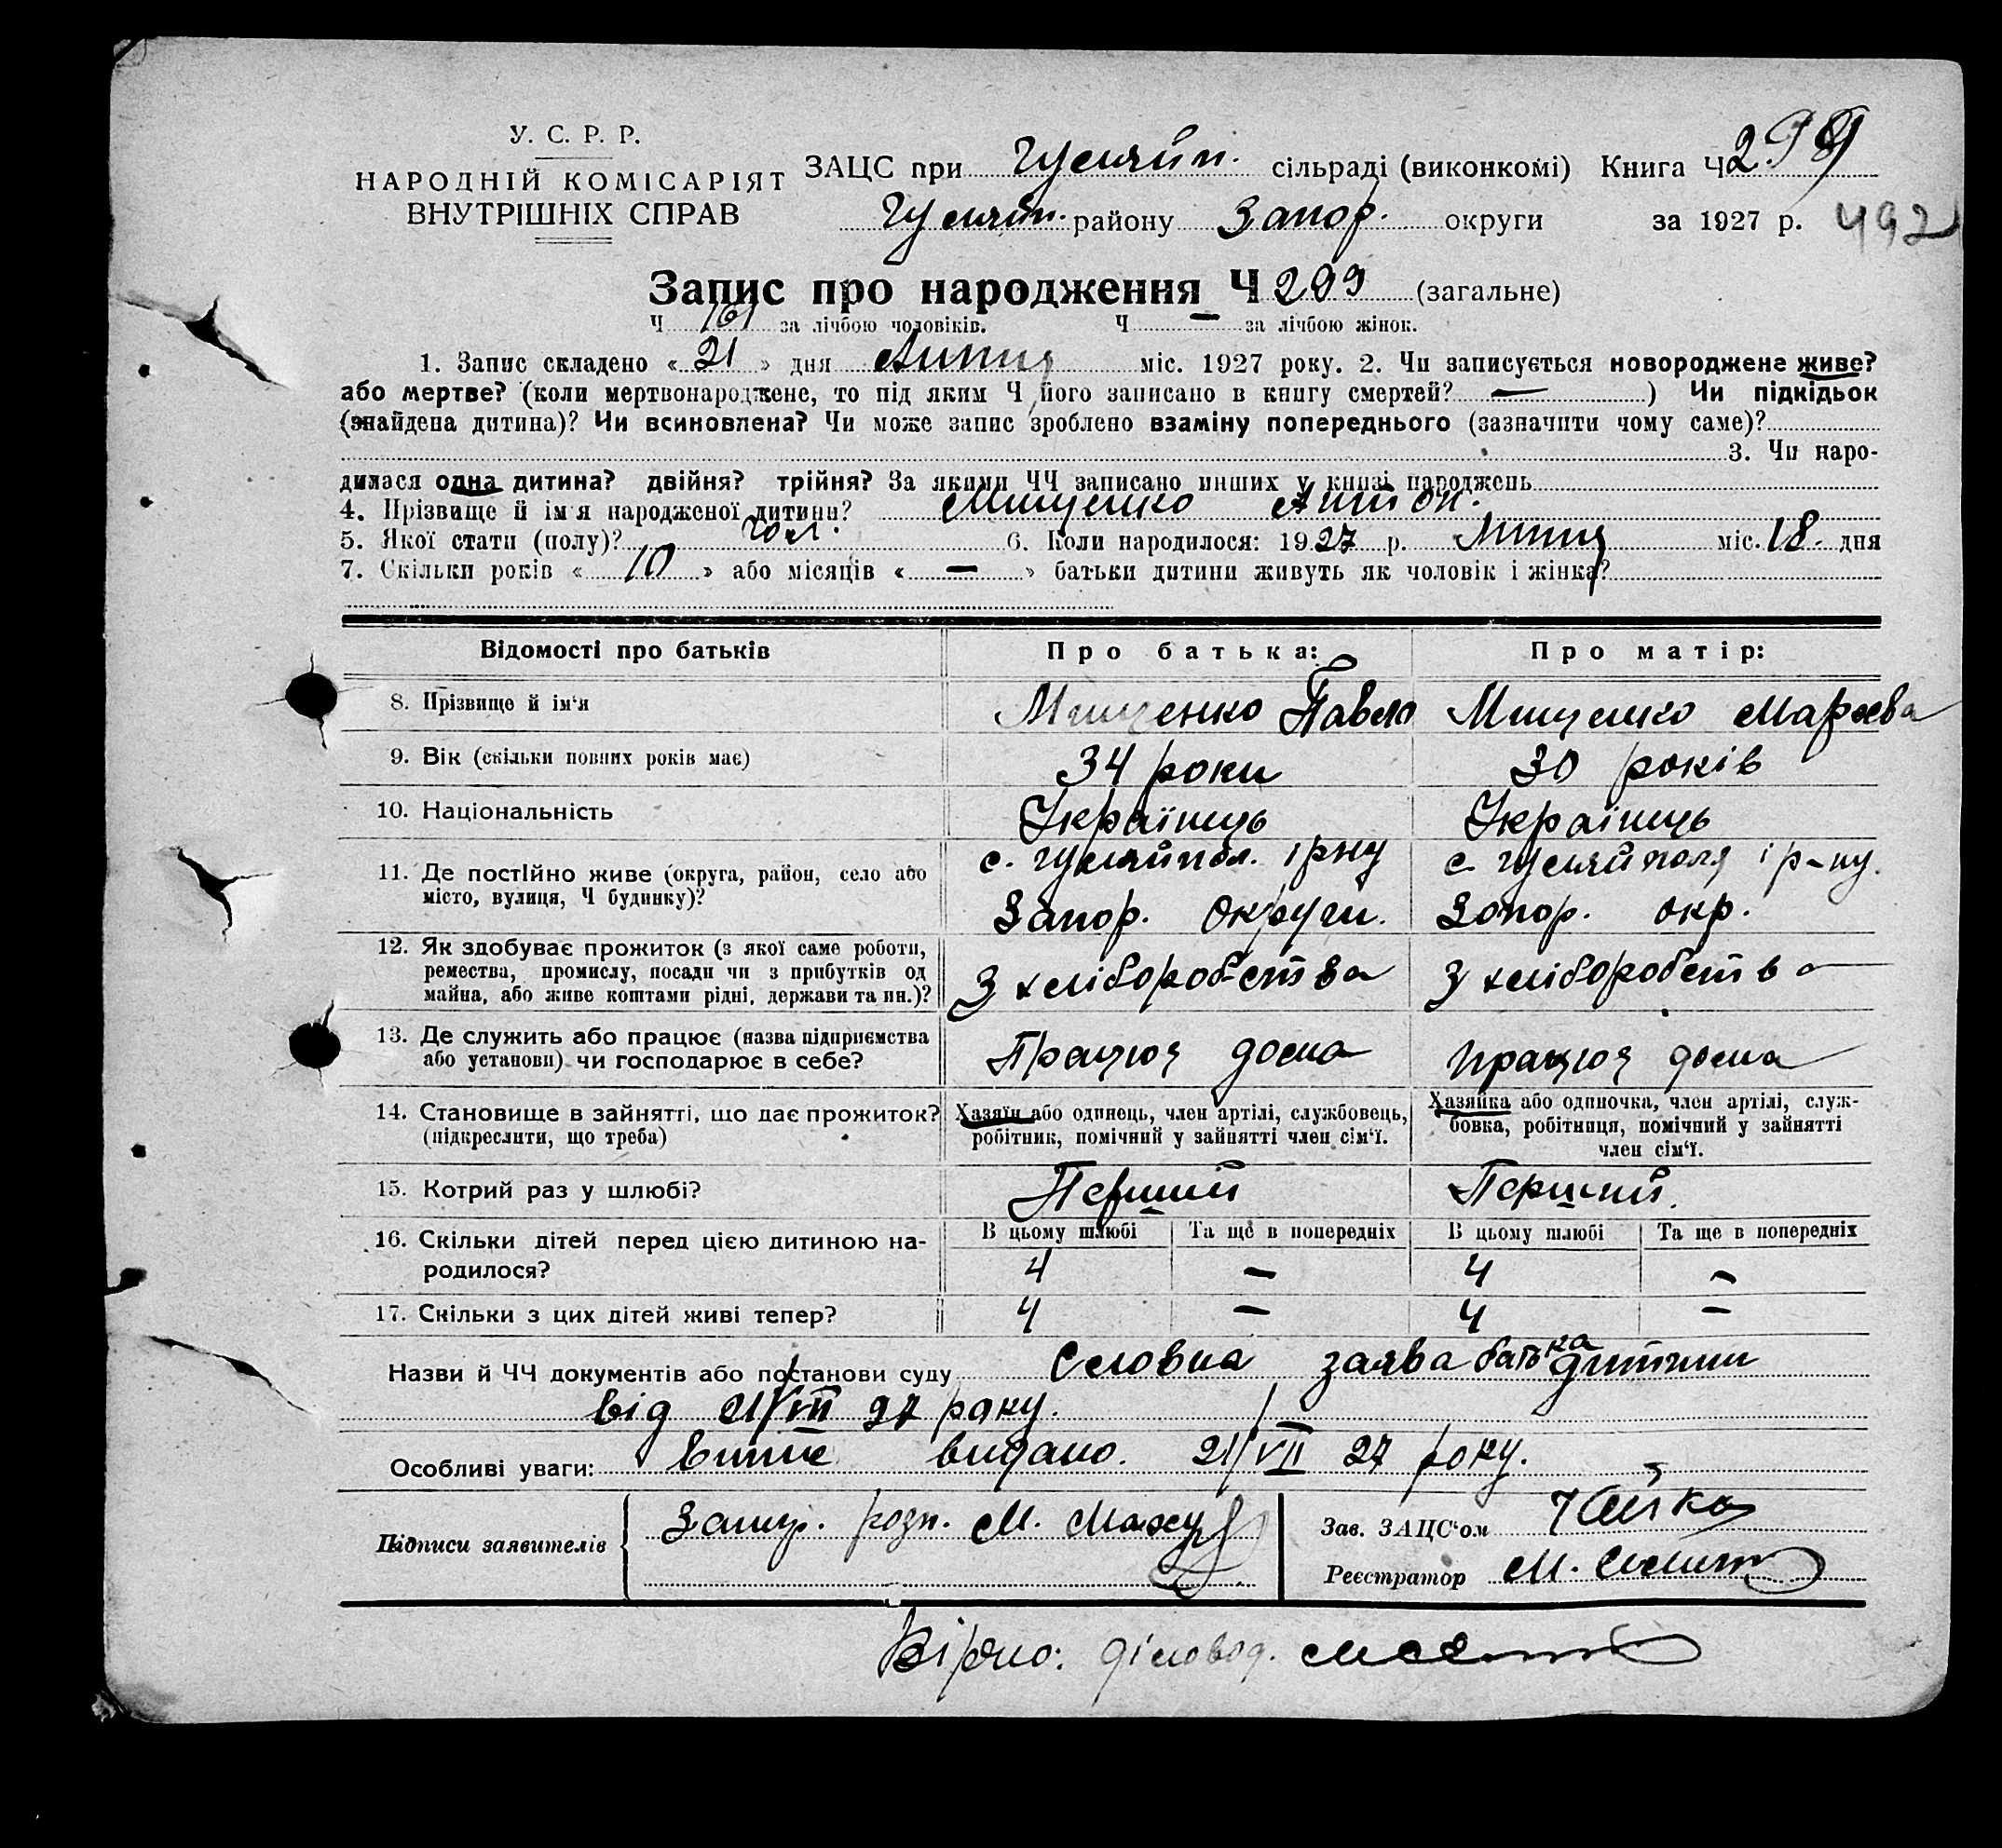 У. С. Р. Р.
НАРОДНІЙ КОМІСАРІЯТ
ВНУТРІШНІХ СПРАВ
ЗАЦС при Гуляйп. сільраді (виконкомі) Книга Ч
Гуляйп. району Запор. округи за 1927 р. 492
Запис про народження Ч 299 (загальне)
Ч 161 за лічбою чоловіків. Ч — за лічбою жінок.
1. Запис складено « 21 » дня Липня міс. 1927 року. 2. Чи записується новороджене живе?
або мертве? (коли мертвонароджене, то під яким Ч його записано в книгу смертей? — ) Чи підкідьок
(знайдена дитина)? Чи всиновлена? Чи може запис зроблено взаміну попереднього (зазначити чому саме)?
3. Чи наро-
дилася одна дитина? двійня? трійня? За якими ЧЧ записано инших у книзі народжень
4. Прізвище й ім'я народженої дитини? Мищенко Антон.
5. Якої стати (полу)? чол. 6. Коли народилося: 1927 р. Липня міс. 18 дня
7. Скільки років « 10 » або місяців « — » батьки дитини живуть як чоловік і жінка?
Відомості про батьків Про батька: Про матір:
8. Прізвище й ім'я Мищенко Павло Мищенко
9. Вік (скільки повних років має) 34 роки 30 років
10. Національність Українець Українець
11. Де постійно живе (округа, район, село або місто, вулиця, Ч будинку)?
с. Гуляйпол. і рну
Запор. округи.
с. Гуляйполя і р-ну.
Запор. окр.
12. Як здобуває прожиток (з якої саме роботи,
ремества, промислу, посади чи з прибутків од
майна, або живе коштами рідні, держави та ин.)?
З хліборобства З хліборобства
13. Де служить або працює (назва підприємства
або установи) чи господарює в себе?
Працює дома працює дома
14. Становище в зайнятті, що дає прожиток?
(підкреслити, що треба)
Хазяїн або одинець, член артілі, службовець,
робітник, помічний у зайнятті член сім'ї.
Хазяйка або одиночка, член артілі, служ-
бовка, робітниця, помічний у зайнятті
член сім'ї.
15. Котрий раз у шлюбі? Перший Перший.
16. Скільки дітей перед цією дитиною на-
родилося?
В цьому шлюбі Та ще в попередніх В цьому шлюбі Та ще в попередніх
4 — 4 —
17. Скільки з цих дітей живі тепер? 4 — 4 —
Назви й ЧЧ документів або постанови суду Словна заява батька дитини
від 21/VII 27 року.
Особливі уваги: видано. 21/VII 27 року.
Підписи заявителів розп. М.
Зав. ЗАЦС'ом
Реєстратор М.
Вірно: діловод.